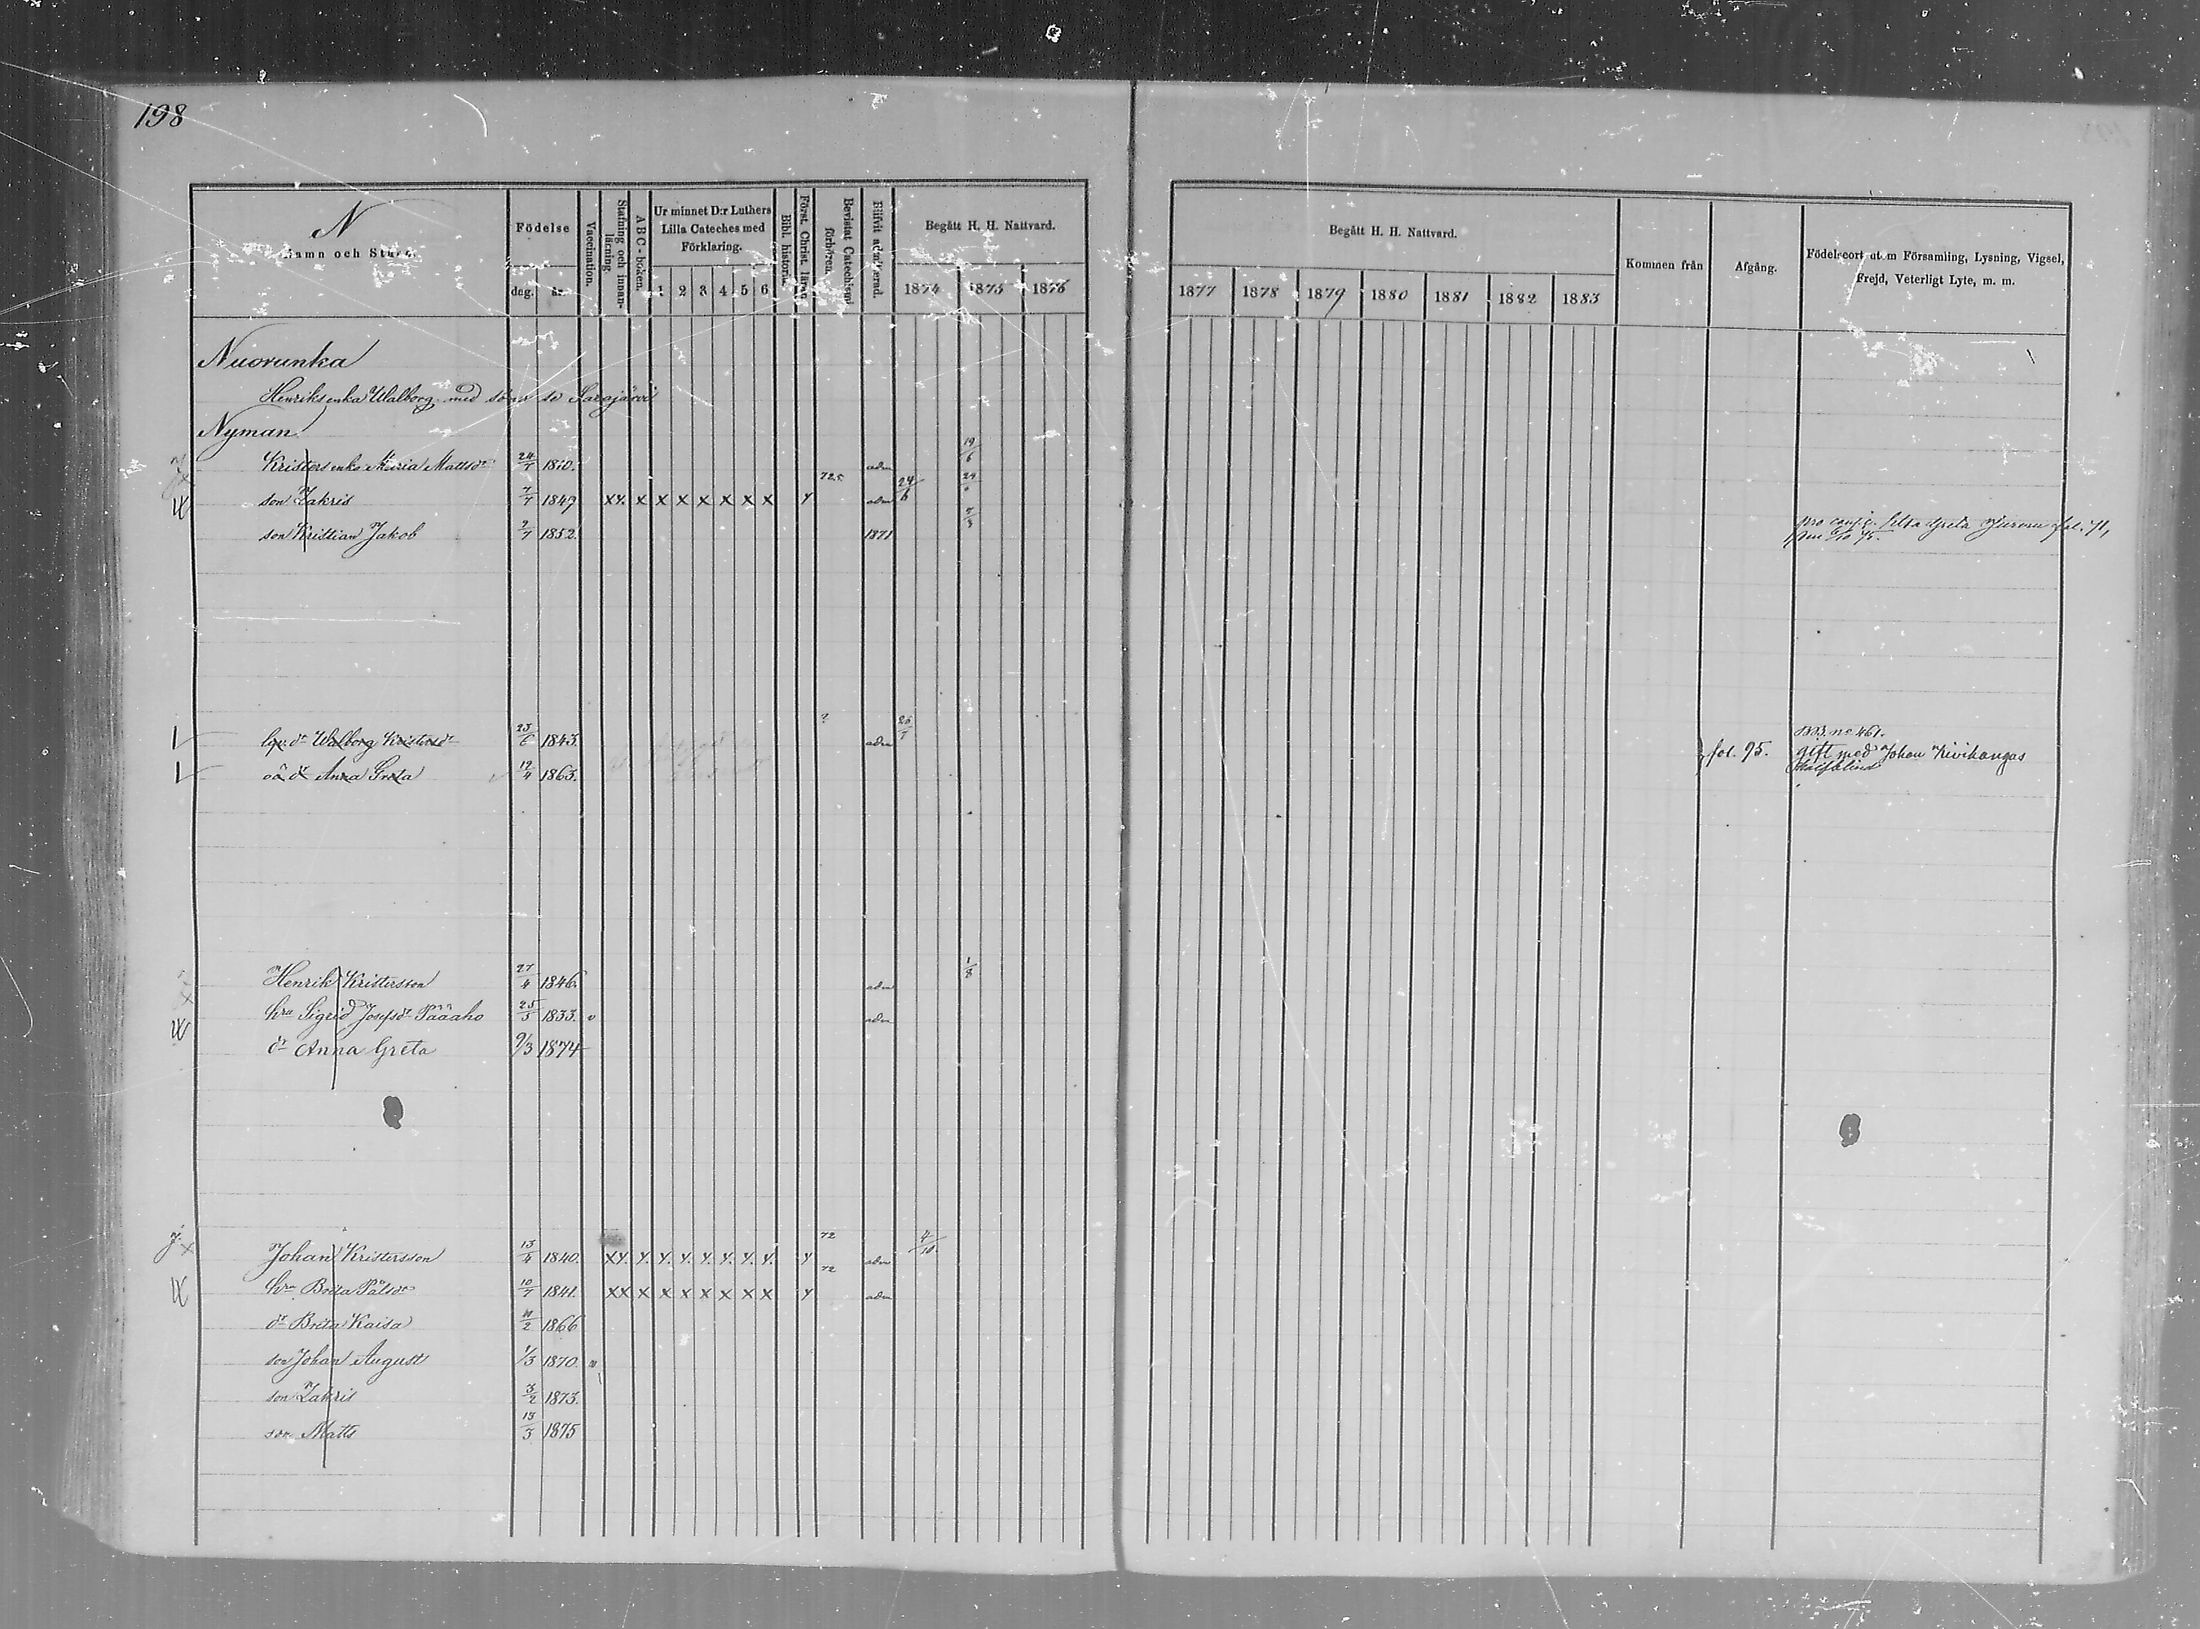 198
N
Namn och Stånd.
Födelse
dag. år.
Vaccination.
Stafning och innanläsning.
ABC-boken.
Ur minnet D:r Luthers Lilla Cateches med Förklaring.
1 2 3 4 5 6
Bibl. historia.
Först. Christ. läran.
Bevistat Catechismi förhören.
Blifvit admitterad.
Begått H. H. Nattvard.
1874 1875 1876
Begått H. H. Nattvard.
1877 1878 1879 1880 1881 1882 1883
Kommen från
Afgång.
Födelseort utom Församling, Lysning, Vigsel,
Frejd, Veterligt Lyte, m. m.
Nuorunka
Henriks enka Walborg med söner se Sarajärvi
Nyman
Kristers enka Maria Mattsdr 24/7 1810. adm 19/6
son Zakris 7/7 1849 XY. X X X X X X X Y 72,5 adm 24/6 24
son Kristian Jakob 2/7 1852. 1871 Greta
lgn dr Walborg Kristersdr 23/6 1843. ? adm 26/7 no 461.
oä dr Anna Greta 12/4 1863. fol. 95. gift med Johan Kivikangas
Halfblind
Henrik Kristersson 27/4 1846. adm 1/8
hru Sigrid Josefsdr Pääaho 25/3 1833. v adm
dr Anna Greta 9/3 1874
Johan Kristersson 13/4 1840. XY. Y. Y. Y. Y. Y. Y. Y. Y 72 adm 4/10
hru Brita Pålsdr 10/7 1841. XX X X X X X X X Y 72 adm
dr Brita Kaisa 11/2 1866
son Johan August 1/3 1870. v
son Zakris 3/2 1873.
son Matts 13/3 1875